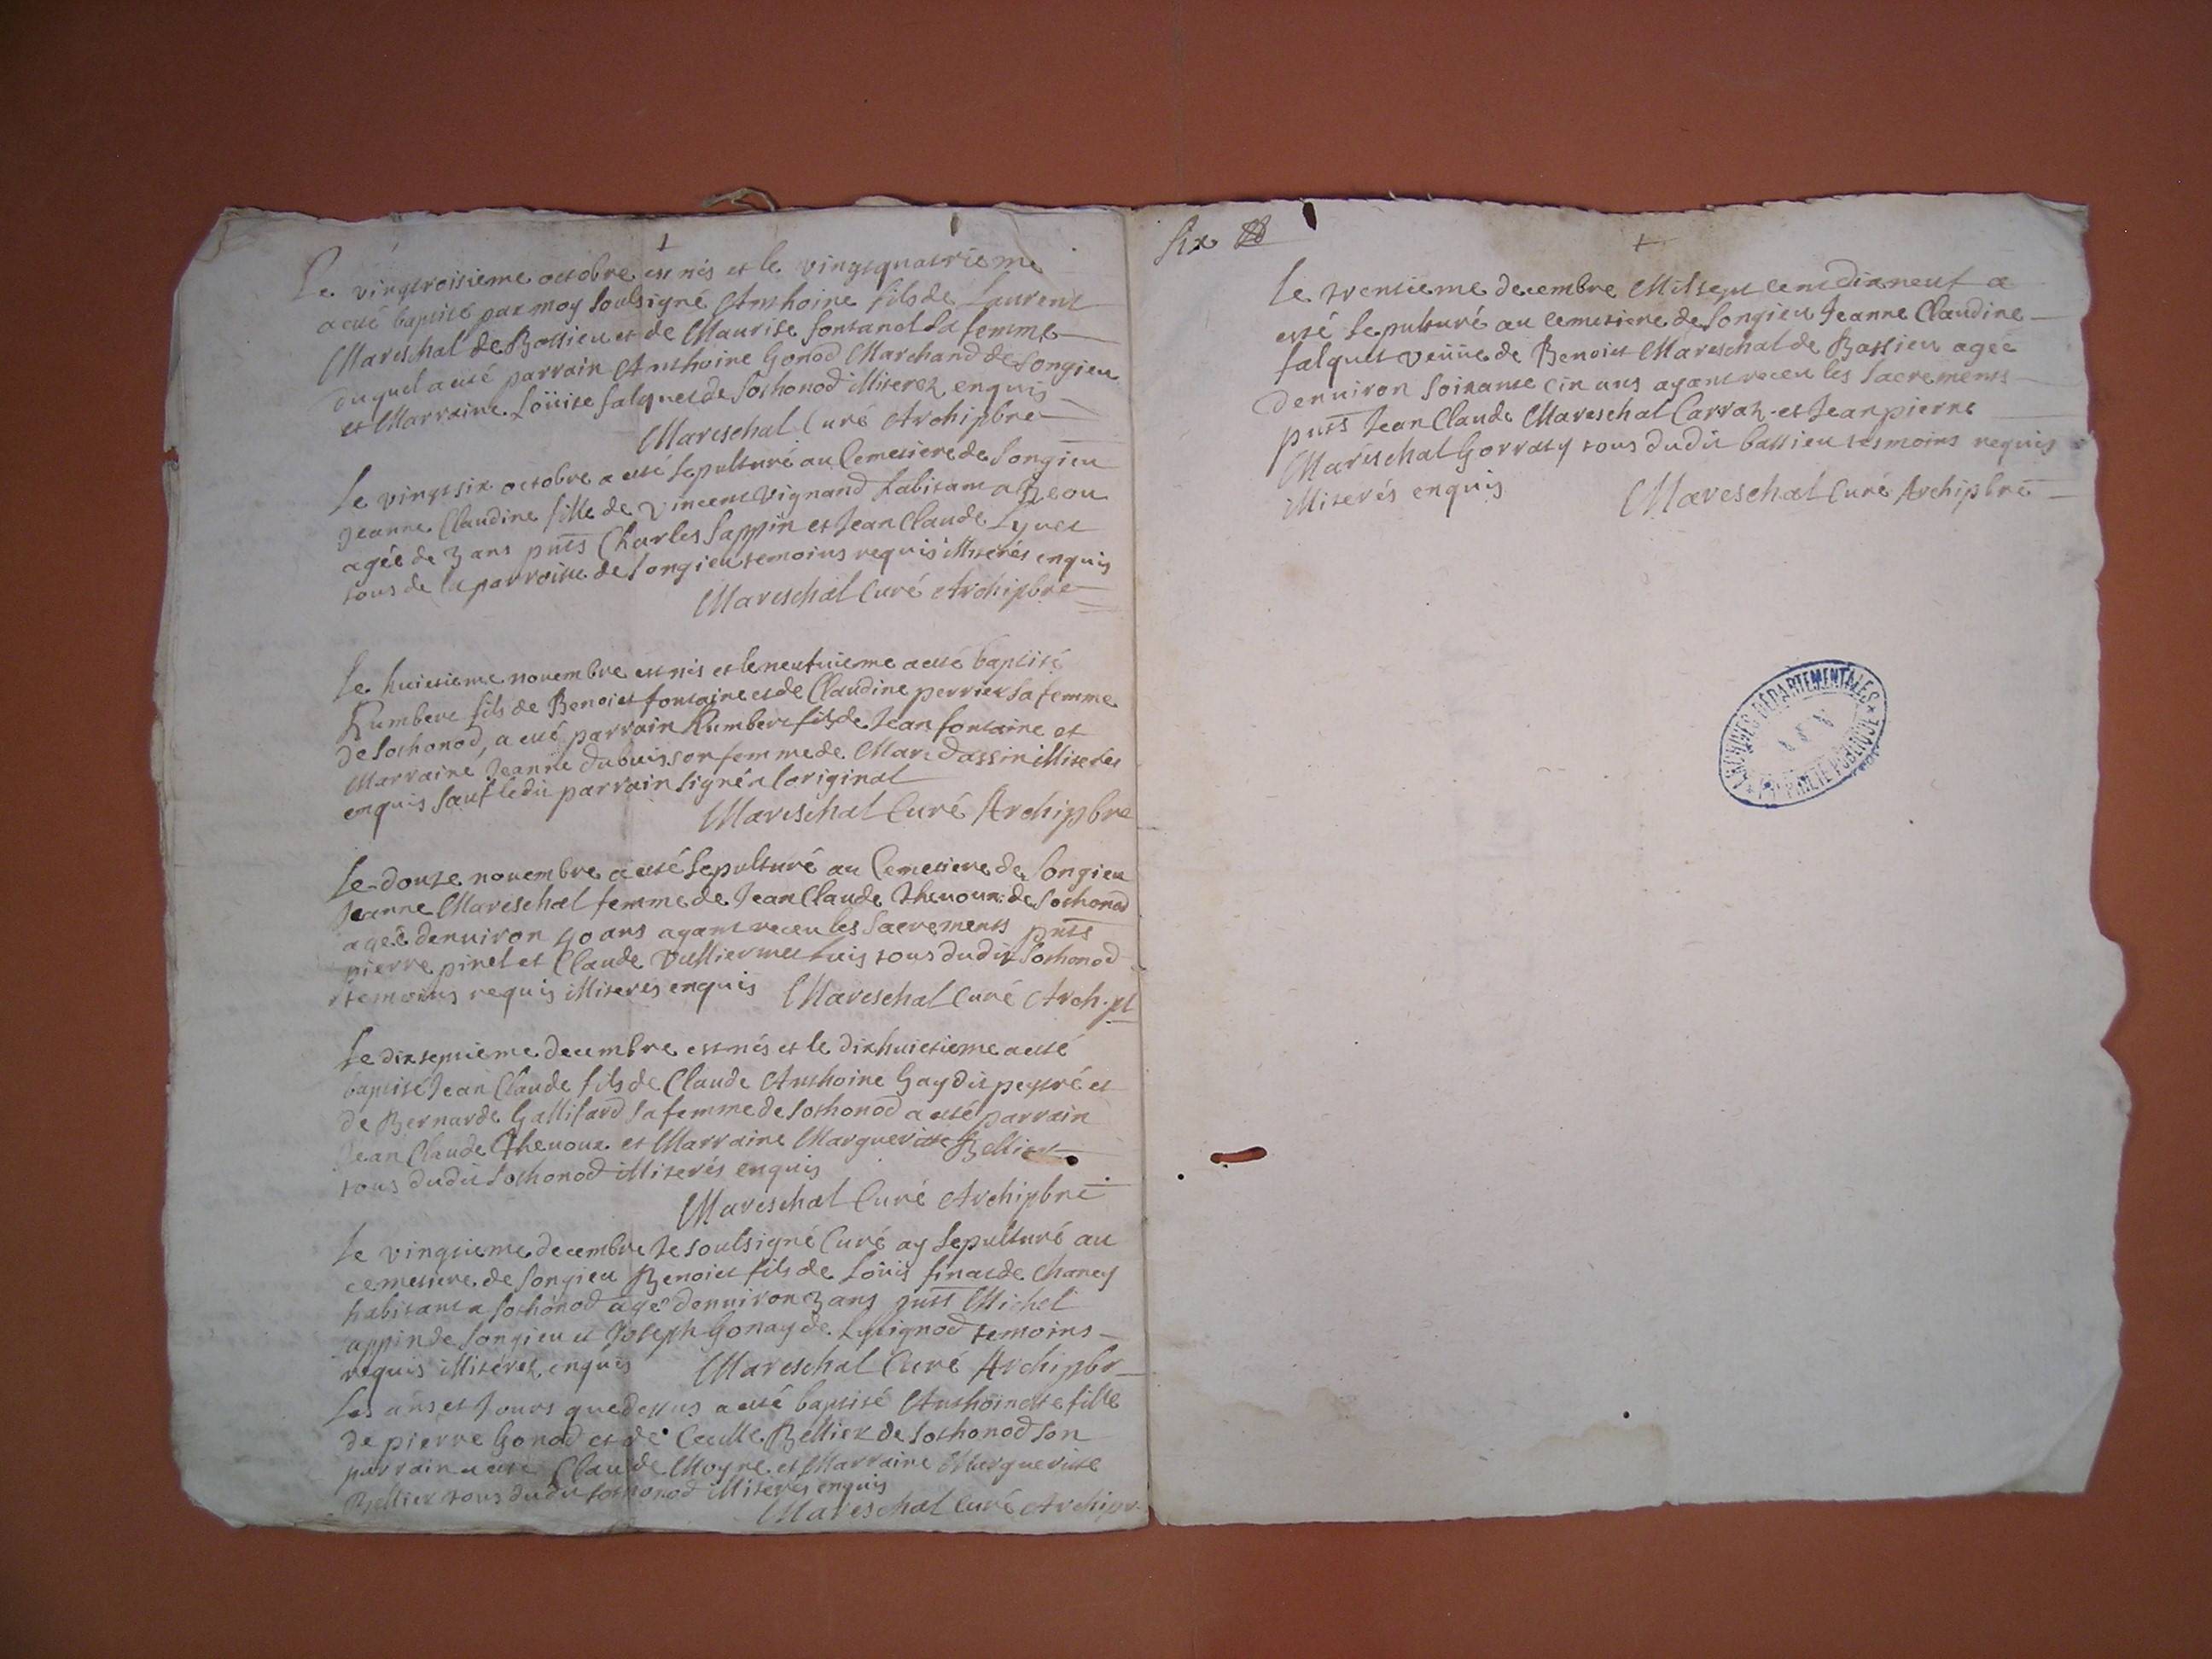 Le vingtroisieme octobre est nis et le vingtquatrieme
a esté baptisé par moy soubsigné Anthoine fils de Laurent
Mareschal de Bassieu et de Maurise fontanel sa femme
duquel a esté parrain Anthoine Gonod Marchand de Songieu
et Marraine Loüise falquet de Sothonod illiterez enquis
Mareschal Curé Archipbre
Le vingtsix octobre a esté sepulturé au Cemetiere de Songieu
Jeanne Claudine fille de Vincent Vignand habitant a
agée de 3 ans pnts Charles Sappin et Jean Claude Lyvet
tous de la parroisse de Songieu temoins requis illiterés enquis
Mareschal Curé Archipbre
Le huictieme novembre est nis et le neufuieme a esté baptisé
Humbert fils de Benoict fontaine et de Claudine perrier sa femme
de Sothonod, a esté parrain Humbert fils de Jean fontaine et
Marraine Jeanne dubuisson femme de Marc dassin illiteres
enquis sauf ledit parrain signé a loriginal
Mareschal Curé Archipbre
Le douze novembre a esté sepulturé au Cemetiere de Songieu
Jeanne Mareschal femme de Jean Claude Thevoux de Sothonod
agée denuiron 40 ans ayant receu les Sacrements pnts
pierre pinet et Claude Vulliermet tuis tous dudit Sothonod
temoins requis illiteres enquis Mareschal Curé Arch.pt
Le dixseptieme decembre est nés et le dixhuictieme a esté
baptisé Jean Claude fils de Claude Anthoine Gay dit peytré et
de Bernarde Gallifard sa femme de Sothonod a esté parrain
Jean Claude Thevoux et Marraine Marguerite Bellier
tous dudit Sothonod illiterés enquis
Mareschal Curé Archipbre
Le vingtieme decembre Je soubsigné Curé ay sepulturé au
cemetiere de Songieu Benoict fils de Loüis finat de Chanay
habitant a Sothonod agé denuiron 3 ans pnts Michel
Sappin de Songieu et Joseph Gonay de Lilignod temoins
requis illiterez enquis Mareschal Curé Archipbr
Les ans et Jours que dessus a esté baptisé Anthoinette fille
de pierre Gonod et de Cecille Bellier de Sothonod son
parrain a esté Claude Moyne et Marraine Marguerite
Bellier tous dudit Sothonod illiteres enquis
Mareschal Curé Archipr
Six
Le trentieme decembre Mil sept cent dixneuf a
esté sepulturé au cemetiere de Songieu Jeanne Claudine
falquet veuue de Benoict Mareschal de Bassieu agée
denuiron soixante cin ans ayant receu les Sacrements
pnts Jean Claude Mareschal Carraz et Jean pierre
Mareschal Gorraty tous dudit bassieu tesmoins requis
illiterés enquis Mareschal Curé Archipbre
ARCHIVES DÉPARTEMENTALES
PARTIE PUBLIQUE